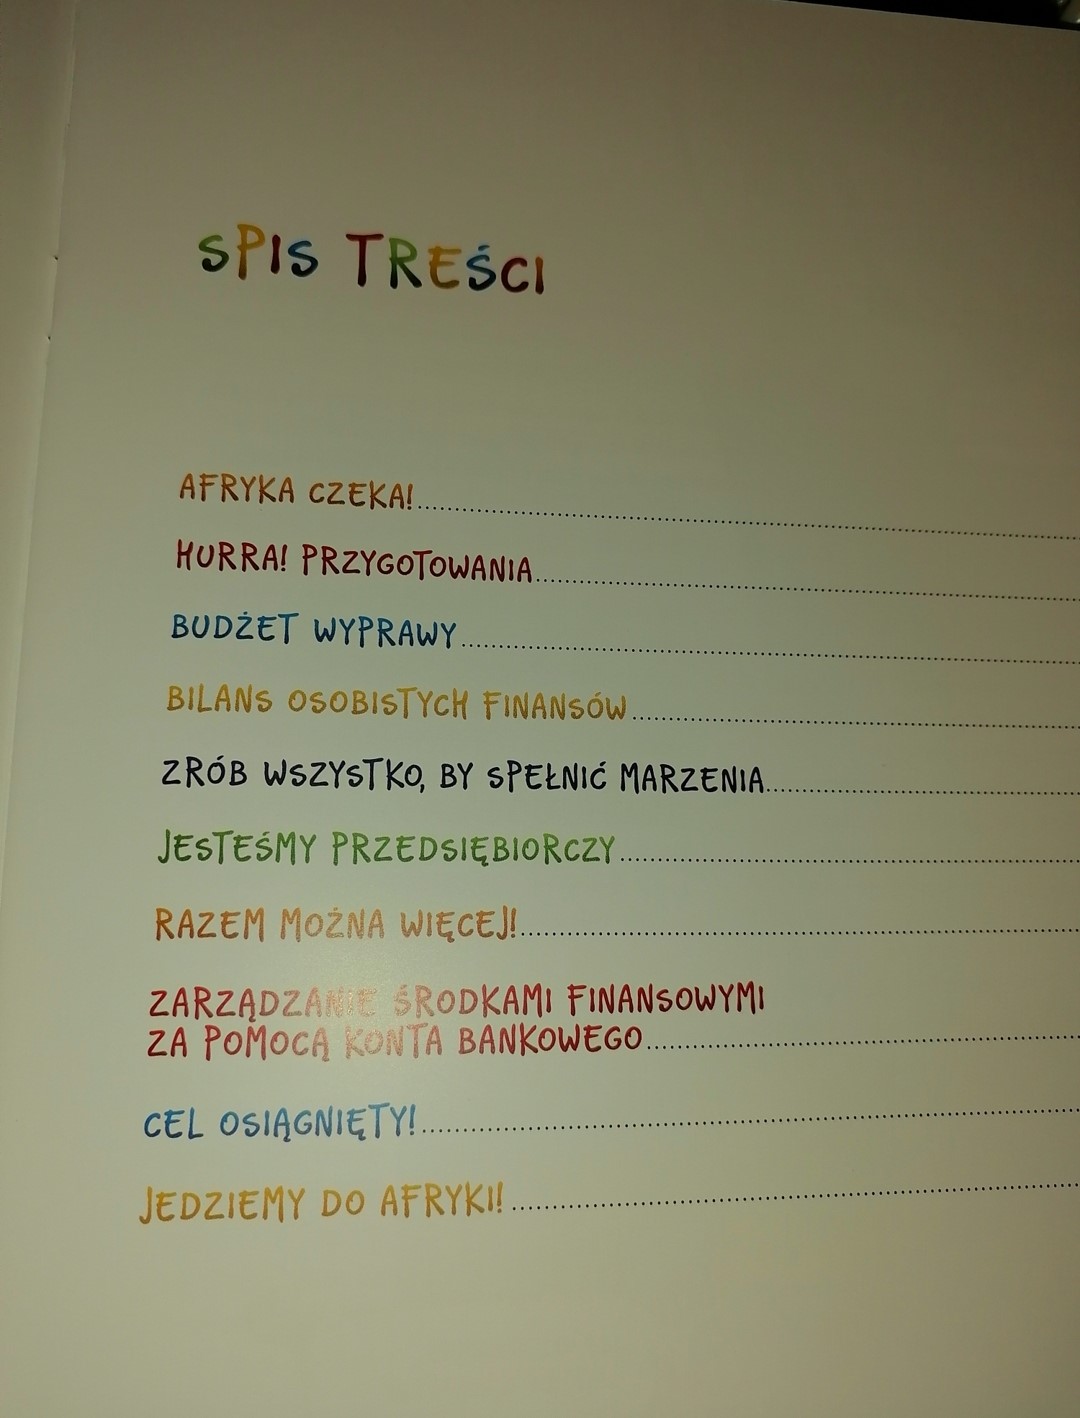 SPIS TREŚCI
AFRYKA CZEKA!
HURRA! PRZYGOTOWANIA
BUDŻET WYPRAWY
BILANS OSOBISTYCH FINANSÓW
ZRÓB WSZYSTKO, BY SPEŁNIĆ MARZENIA
JESTEŚMY PRZEDSIĘBIORCZY
RAZEM MOŻNA WIĘCEJ!
ZARZĄDZANIE ŚRODKAMI FINANSOWYMI
ZA POMOCĄ KONTA BANKOWEGO
CEL OSIĄGNIĘTY!
JEDZIEMY DO AFRYKI!